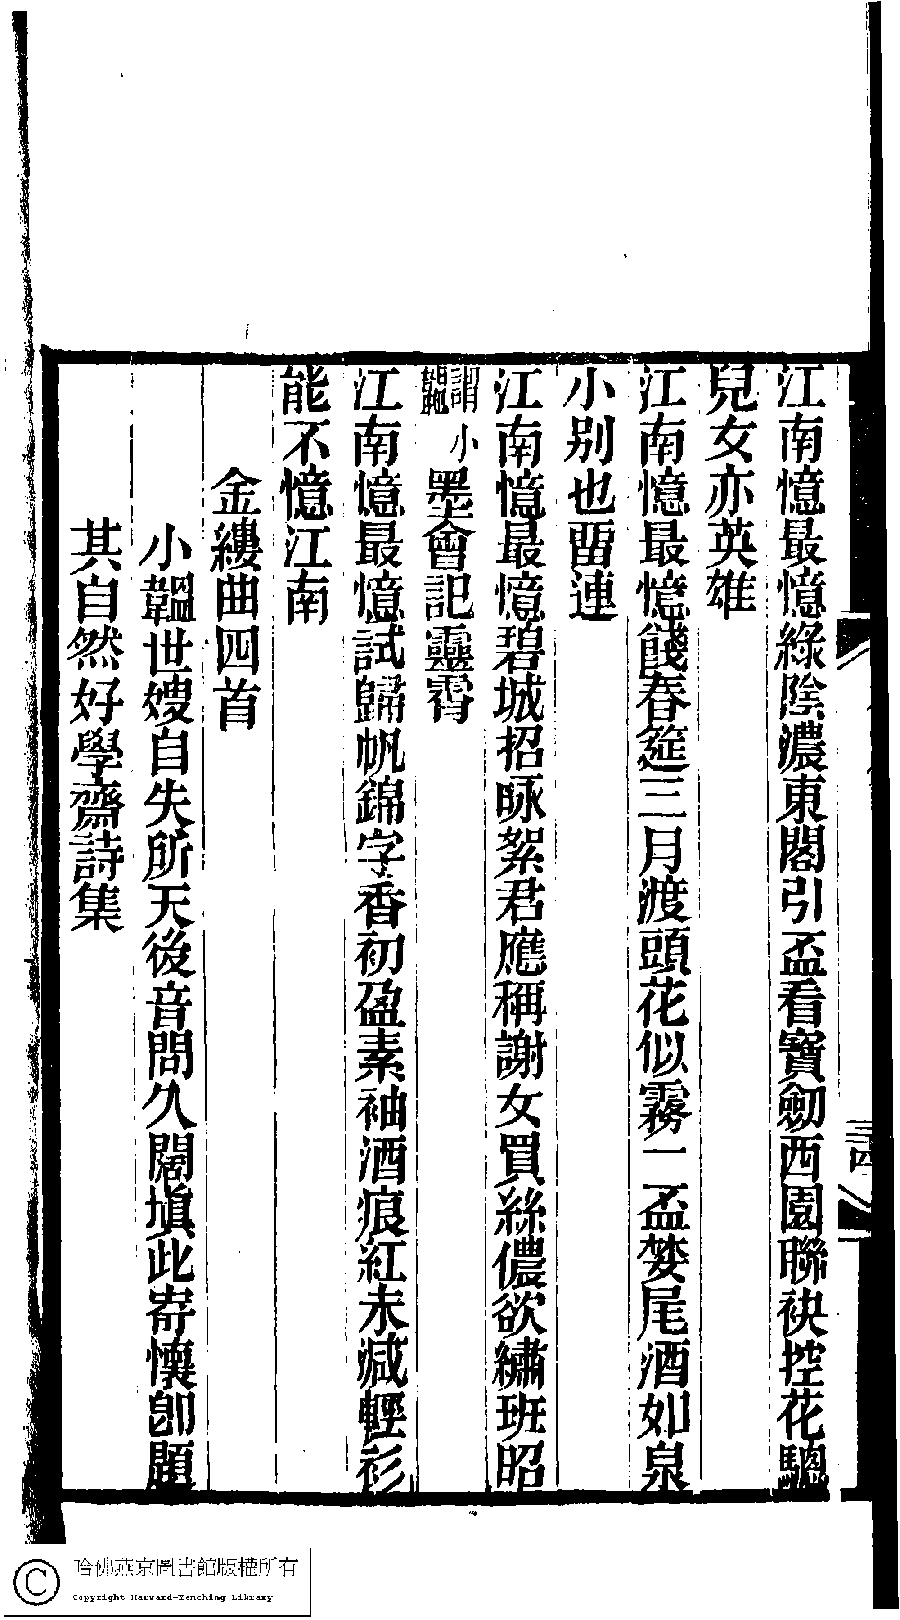 江南憶最憶綠陰濃東閣引盃看寶劒西園聯袂控花驄
兒女亦英雄
江南憶最憶餞春筵三月渡頭花似霧一盃婪尾酒如泉
小别也留連
江南憶最憶碧城招咏絮君應稱謝女買絲儂欲繡班昭
謂小
韞
墨會記靈霄
江南憶最憶試歸帆錦字香初盈素袖酒痕紅未減輕衫
能不憶江南
金縷曲四首
小韞世嫂自失所天後音問久闊塡此寄懷卽題
其自然好學齋詩集
三四
哈佛燕京圖書館版權所有
Copyright Harvard-Yenching Library